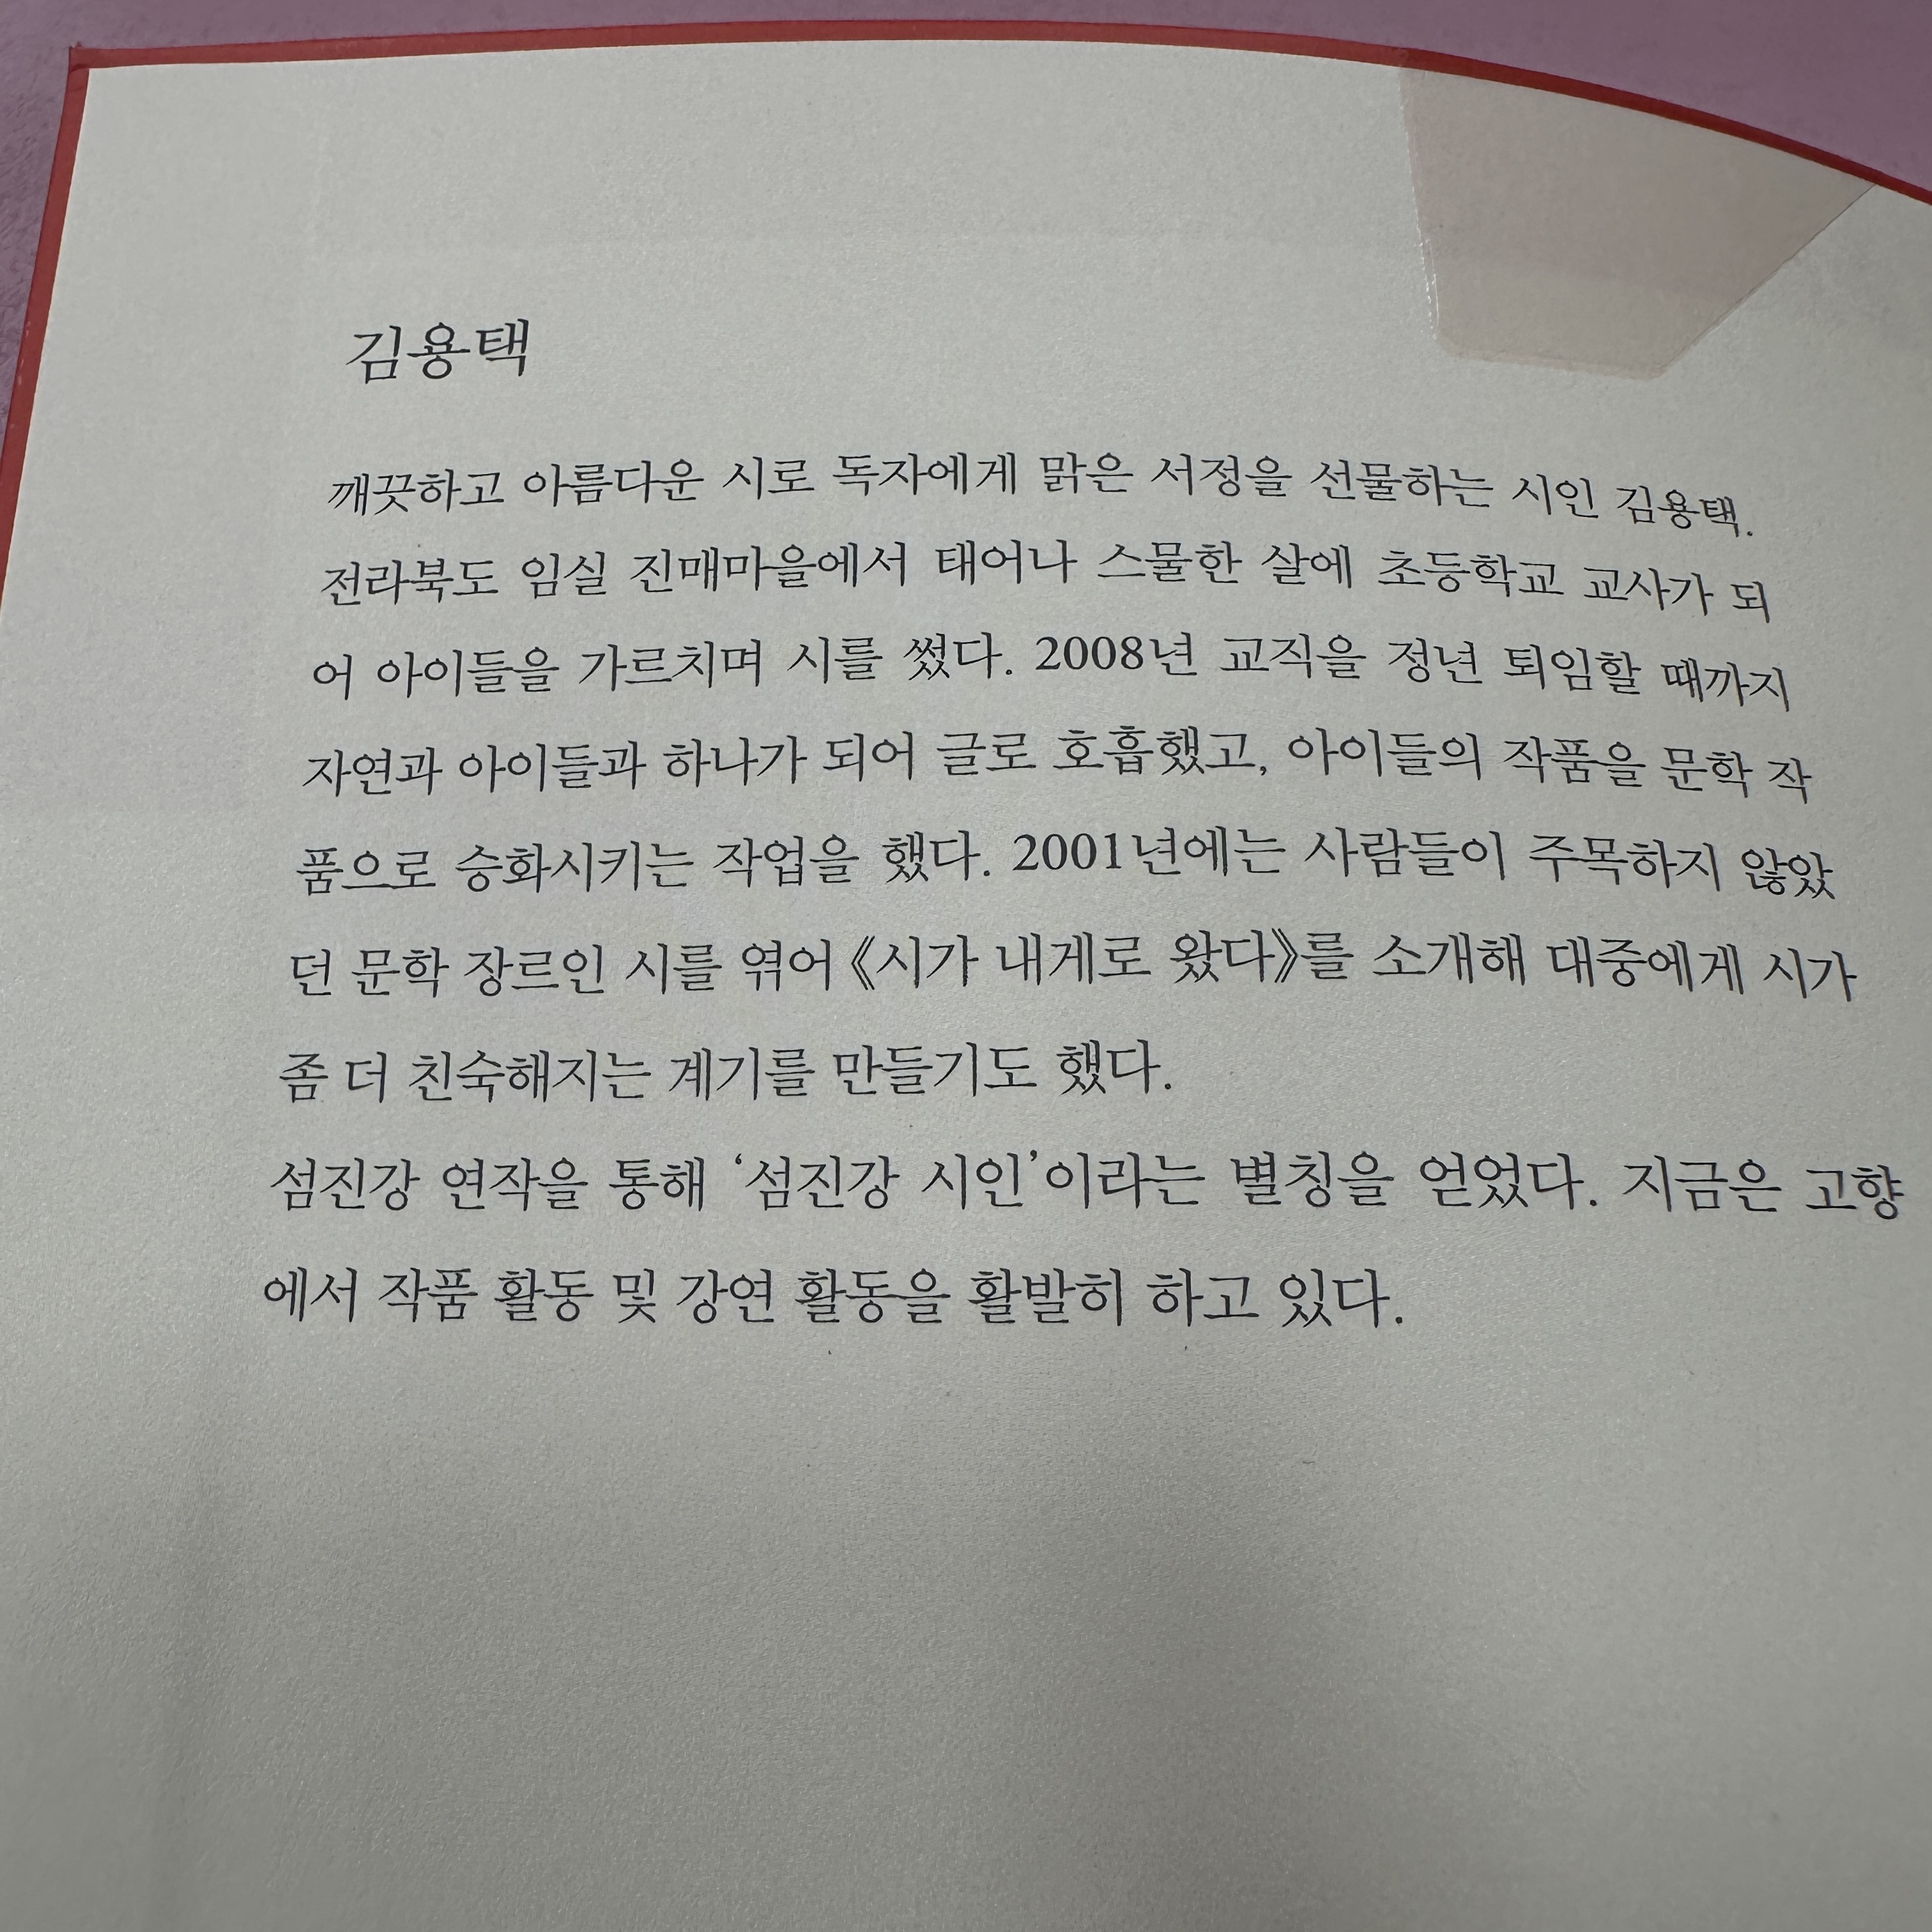 김용택
깨끗하고 아름다운 시로 독자에게 맑은 서정을 선물하는 시인 김용택.
전라북도 임실 진매마을에서 태어나 스물한 살에 초등학교 교사가 되
어 아이들을 가르치며 시를 썼다. 2008년 교직을 정년 퇴임할 때까지
자연과 아이들과 하나가 되어 글로 호흡했고, 아이들의 작품을 문학 작
품으로 승화시키는 작업을 했다. 2001년에는 사람들이 주목하지 않았
던 문학 장르인 시를 엮어 《시가 내게로 왔다》를 소개해 대중에게 시가
좀 더 친숙해지는 계기를 만들기도 했다.
섬진강 연작을 통해 ‘섬진강 시인’이라는 별칭을 얻었다. 지금은 고향
에서 작품 활동 및 강연 활동을 활발히 하고 있다.